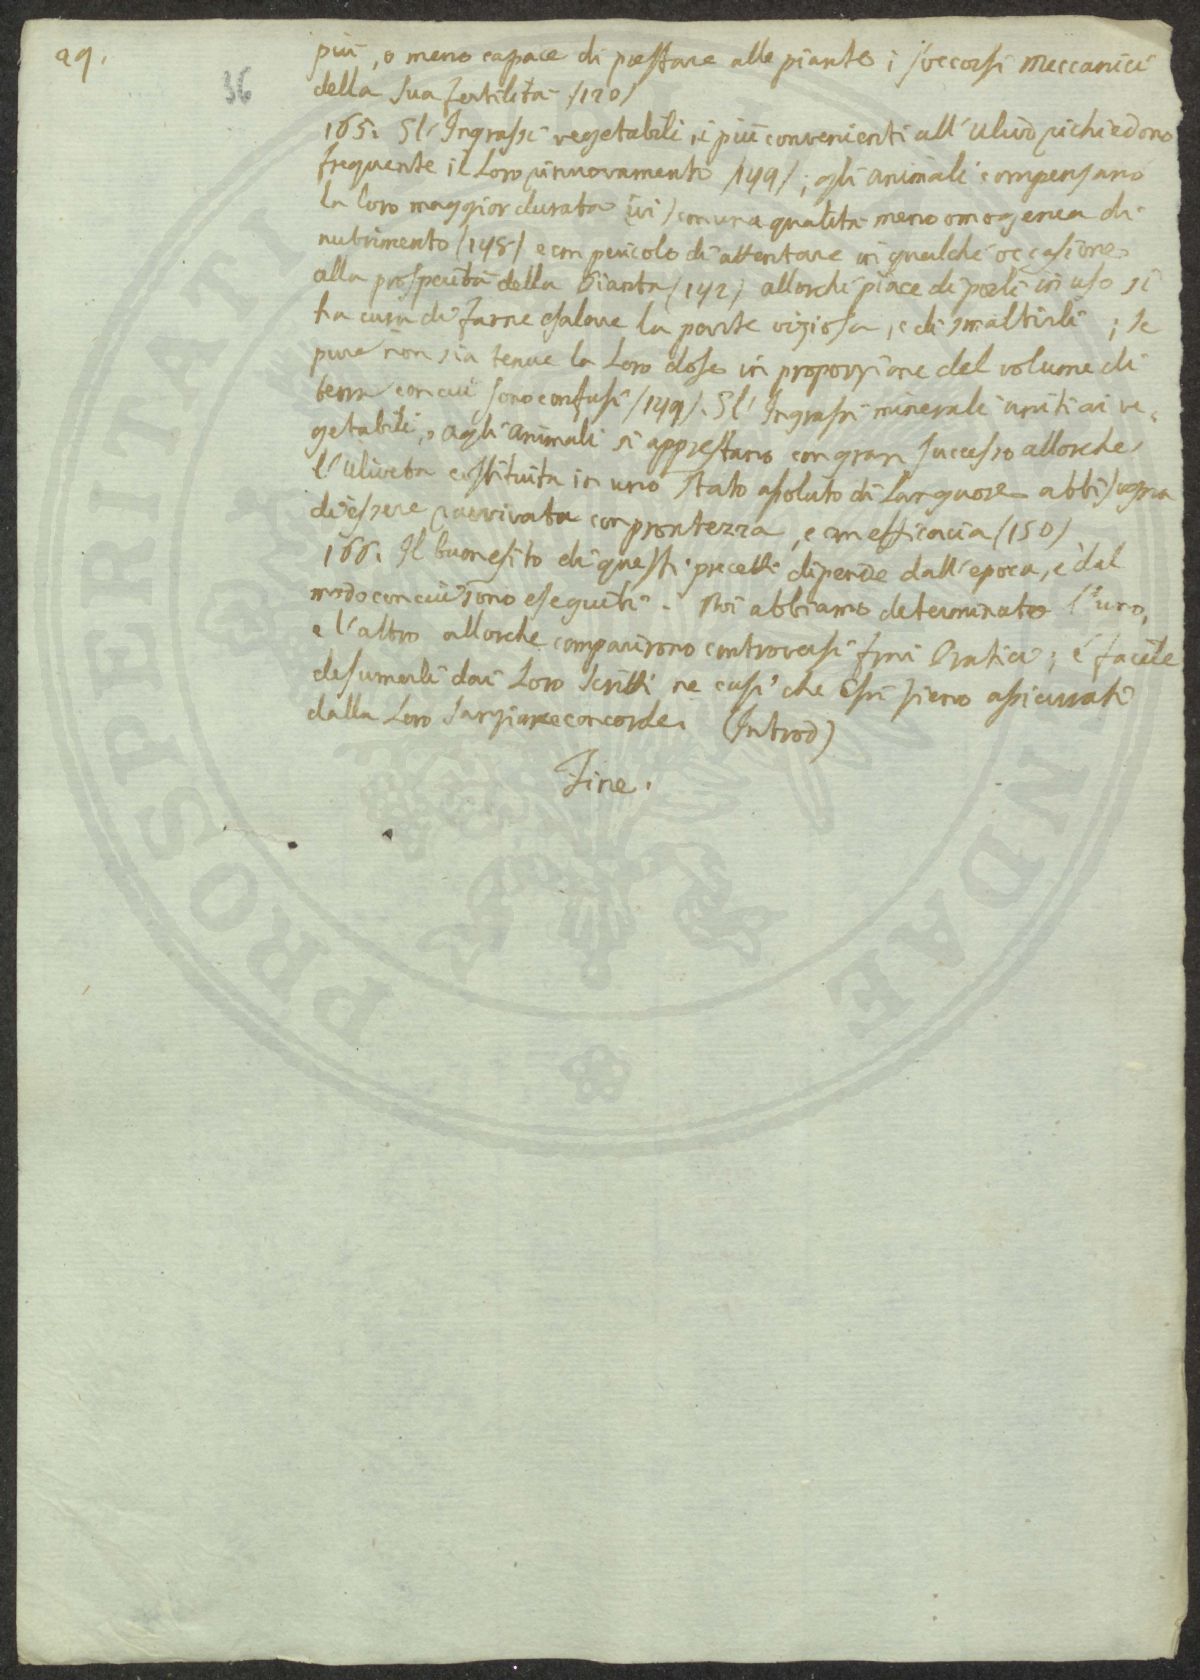 29.
36
più, o meno capace di prestare alle piante i soccorsi meccanici
della sua fertilità /120/
165. Gl'Ingrassi vegetabili i più convenienti all'Ulivo richiedono
frequente il loro rinnovamento /149/; gli animali compensano
la loro maggior durata ivi/ con una qualità meno omogenea di
nutrimento /145/ e con pericolo di attentare in qualche occasione
alla prosperità della Pianta /142/ allorchè piace di porli in uso si
ha cura di farne esalare la parte viziosa, e di smaltirli; se
pure non sia tenue la Loro dose in proporzione del volume di
terra con cui sono confusi /149/. Gl'Ingrassi minerali uniti ai ve=
getabili, o agli animali si apprestano con gran successo allorchè
l'Uliveta costituita in uno stato assoluto di Languore abbisogna
di essere ravvivata con prontezza, e con efficacia /150/
166. Il buon esito di questi precetti dipende dall'epoca, e dal
modo con cui sono eseguiti. Noi abbiamo determinato l'uno,
e l'altro allorchè comparirono controversi fra i Pratici; è facile
desumerli dai Loro scritti ne casi che essi sieno assicurati
dalla Loro sanzione concorde. (Introd)
Fine.
PROSPERITATI AUGENDAE